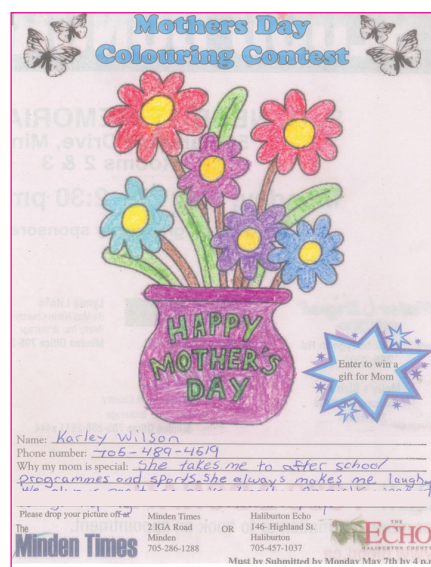 Mothers Day
Colouring Contest
HAPPY
MOTHER'S
DAY
Enter to win a
gift for Mom
Name: Karley Wilson
Phone number: 705-489-4519
Why my mom is special: She takes me to after school
programmes and sports. She always makes me laugh.
Please drop your picture off at
The
Minden Times
Minden Times
2 IGA Road
Minden
705-286-1288
OR
Haliburton Echo
146- Highland St.
Haliburton
705-457-1037
THE
ECHO
HALIBURTON COUNTY
Must by Submitted by Monday May 7th by 4 p.m